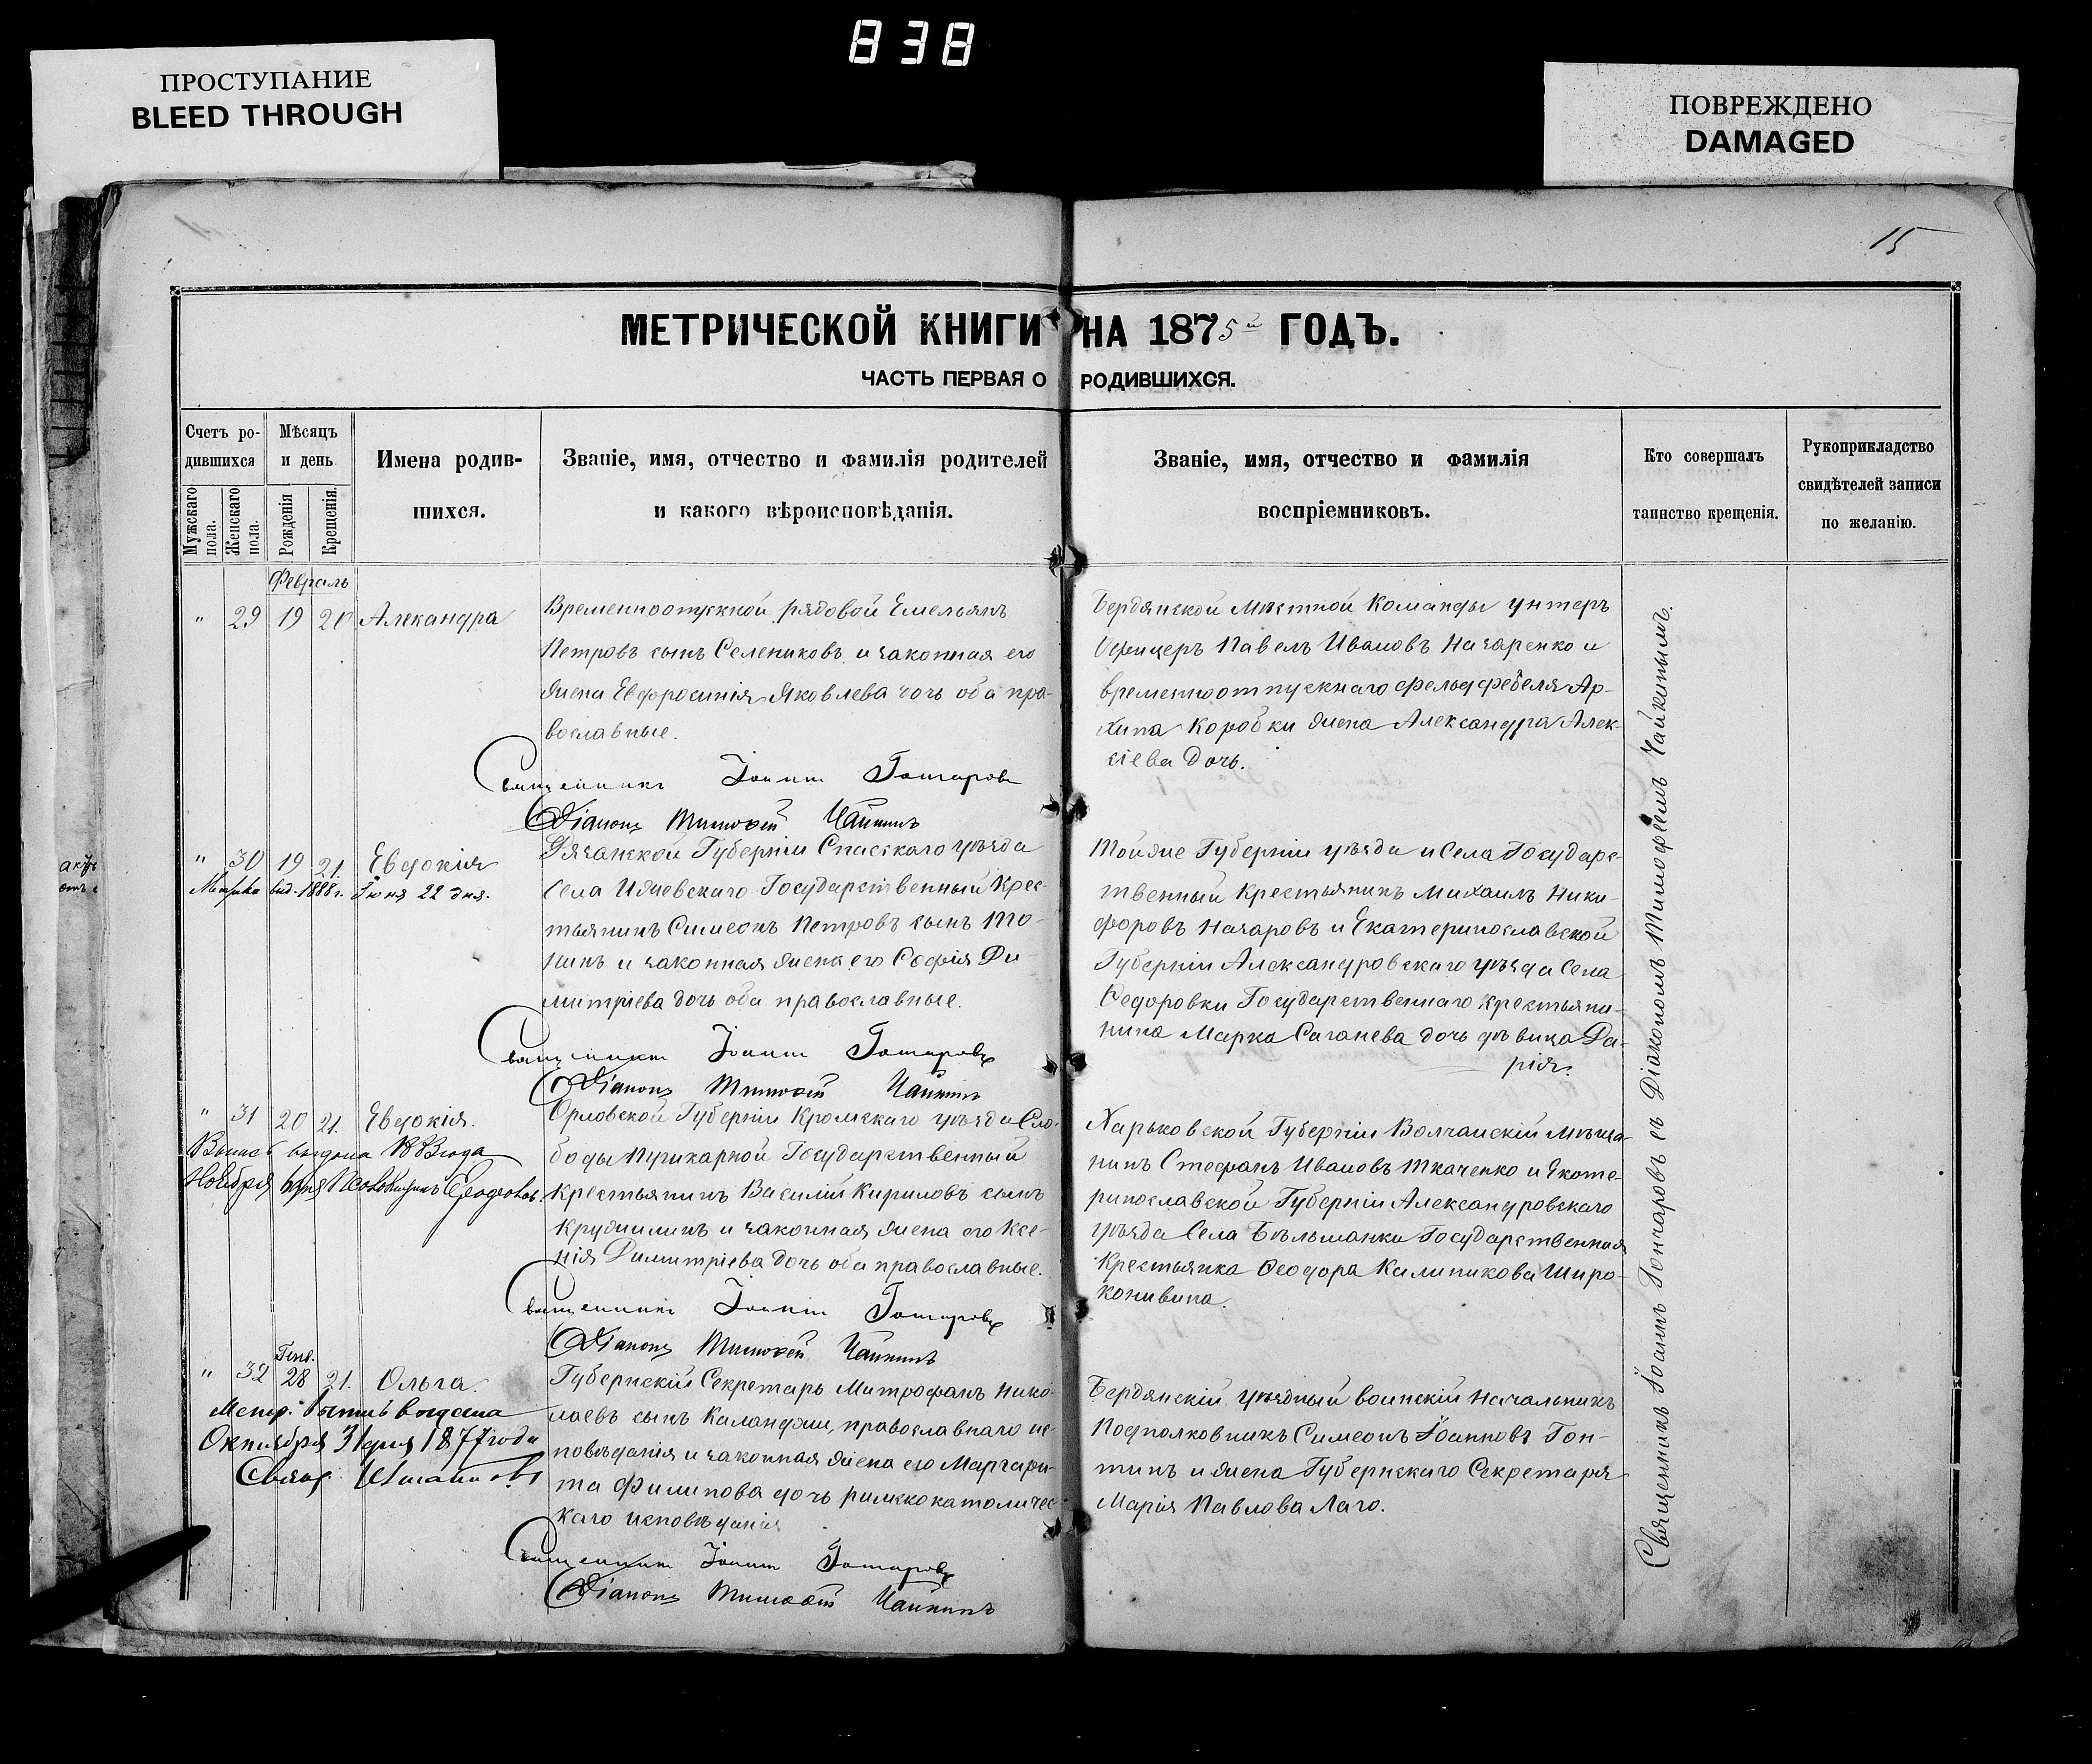 838
ПРОСТУПАНИЕ
BLEED THROUGH
ПОВРЕЖДЕНО
DAMAGED
15
МЕТРИЧЕСКОЙ КНИГИ НА 1875й ГОДЪ.
ЧАСТЬ ПЕРВАЯ О РОДИВШИХСЯ.
Счетъ ро-
дившихся
Мужскаго пола.
Женскаго пола.
Мѣсяцъ
и день
Рожденія
Крещенія.
Имена родив-
шихся.
Званіе, имя, отчество и фамилія родителей
и какого вѣроисповѣданія.
Званіе, имя, отчество и фамилія
воспріемниковъ.
Кто совершалъ
таинство крещенія.
Рукоприкладство
свидѣтелей записи
по желанію.
Февраль
" 29 19 20 Алекандра
Временноотпускной рядовой Емельянъ
Петровъ сынъ Селениковъ и законная его
жена Евфросинія Яковлева дочь оба пра-
вославные.
Священникъ Іоаннъ Гончаровъ
Діаконъ Тимофей Чайкинъ
Бердянской Мѣстной Команды унтеръ
Офицеръ Павелъ Ивановъ Назаренко и
временноотпускнаго фельдфебеля Ар-
хипа Коробки жена Александра Алек-
сіева дочь.
" 30 19 21. Евдокія
Метрика выд. 1888г. Іюня 22 дня.
Рязанской Губерніи Спасскаго уѣзда
Села Ижевскаго Государственный Крес-
тьянинъ Симеонъ Петровъ сынъ То-
нинъ и законная жена его Софія Ди-
митріева дочь оба православные.
Священникъ Іоаннъ Гончаровъ
Діаконъ Тимофей Чайкинъ
Тойже Губерніи уѣзда и Села Государс-
твенный Крестьянинъ Михаилъ Ники-
форовъ Назаровъ и Екатеринославской
Губерніи Александровскаго уѣзда Села
Федоровки Государственнаго крестьяни-
нина Марка Саганева дочь дѣвица Да-
рія.
" 31 20 21. Евдокія.
выдана 1883 года
Ноября
Орловской Губерніи Кромскаго уѣзда Сло-
боды Пушкарной Государственный
Крестьянинъ Василій Кириловъ сынъ
Кружилинъ и законная жена его Ксе-
нія Димитріева дочь оба православные.
Священникъ Іоаннъ Гончаровъ
Діаконъ Тимофей Чайкинъ
Харьковской Губерніи Волчанскій Мѣща-
нинъ Стефанъ Ивановъ Ткаченко и Екате-
ринославской Губерніи Александровскаго
уѣзда Села Бѣльманки Государственная
Крестьянка Ѳеодора Калиникова Широ-
конивина.
Генв.
" 32 28 21. Ольга.
Метр. выпись выдана
Октября 31 дня 1877 года
Губернскій Секретарь Митрофанъ Нико-
лаевъ сынъ Каланджи, православнаго ис-
повѣданія и законная жена его Маргари-
та Филипова дочь римскокатоличес-
каго исповѣданія
Священникъ Іоаннъ Гончаровъ
Діаконъ Тимофей Чайкинъ
Бердянскій уѣздный воинскій Начальникъ
Подполковникъ Симеонъ Іоанновъ Гон-
тинъ и жена Губернскаго Секретаря
Марія Павлова Лаго.
Священникъ Іоаннъ Гончаровъ съ Діакономъ Тимофеемъ Чайкинымъ.